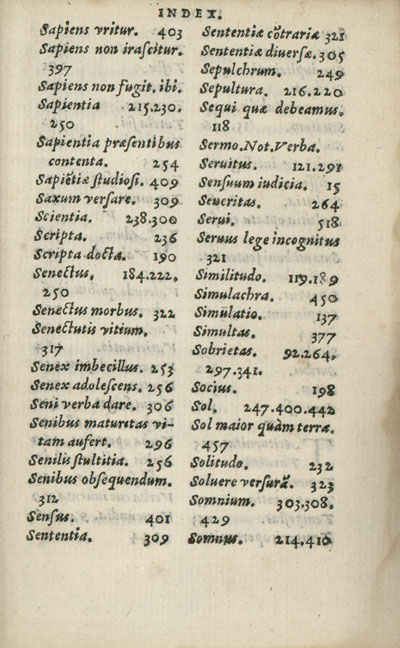 INDEX.
Sapiens vritur. 403
Sapiens non irascitur.
397
Sapiens non fugit. ibi.
Sapientia 215.230.
250
Sapientia præsentibus
contenta. 254
Sapiẽtiæ studiosi. 409
Saxum versare. 309
Scientia. 238.300
Scripta. 236
Scripta docta. 190
Senectus. 184.222.
250
Senectus morbus. 322
Senectutis vitium.
317
Senex imbecillus. 253
Senex adolescens. 256
Seni verba dare. 306
Senibus maturitas vi-
tam aufert. 296
Senilis stultitia. 256
Senibus obsequendum.
312
Sensus. 401
Sententia. 309
Sententiæ cõtrariæ 321
Sententiæ diuersæ. 305
Sepulchrum. 249
Sepultura. 216.220
Sequi quæ debeamus.
118
Sermo.Not.Verba.
Seruitus. 121.291
Sensuum iudicia. 15
Seueritas. 264
Serui. 518
Seruus lege incognitus
321
Similitudo. 119.189
Simulachra. 450
Simulatio. 137
Simultas. 377
Sobrietas. 92.264.
297.341.
Socius. 198
Sol. 247.400.442
Sol maior quàm terra.
457
Solitudo. 232
Soluere versurã. 323
Somnium. 303.308.
429
Somnus. 214.410